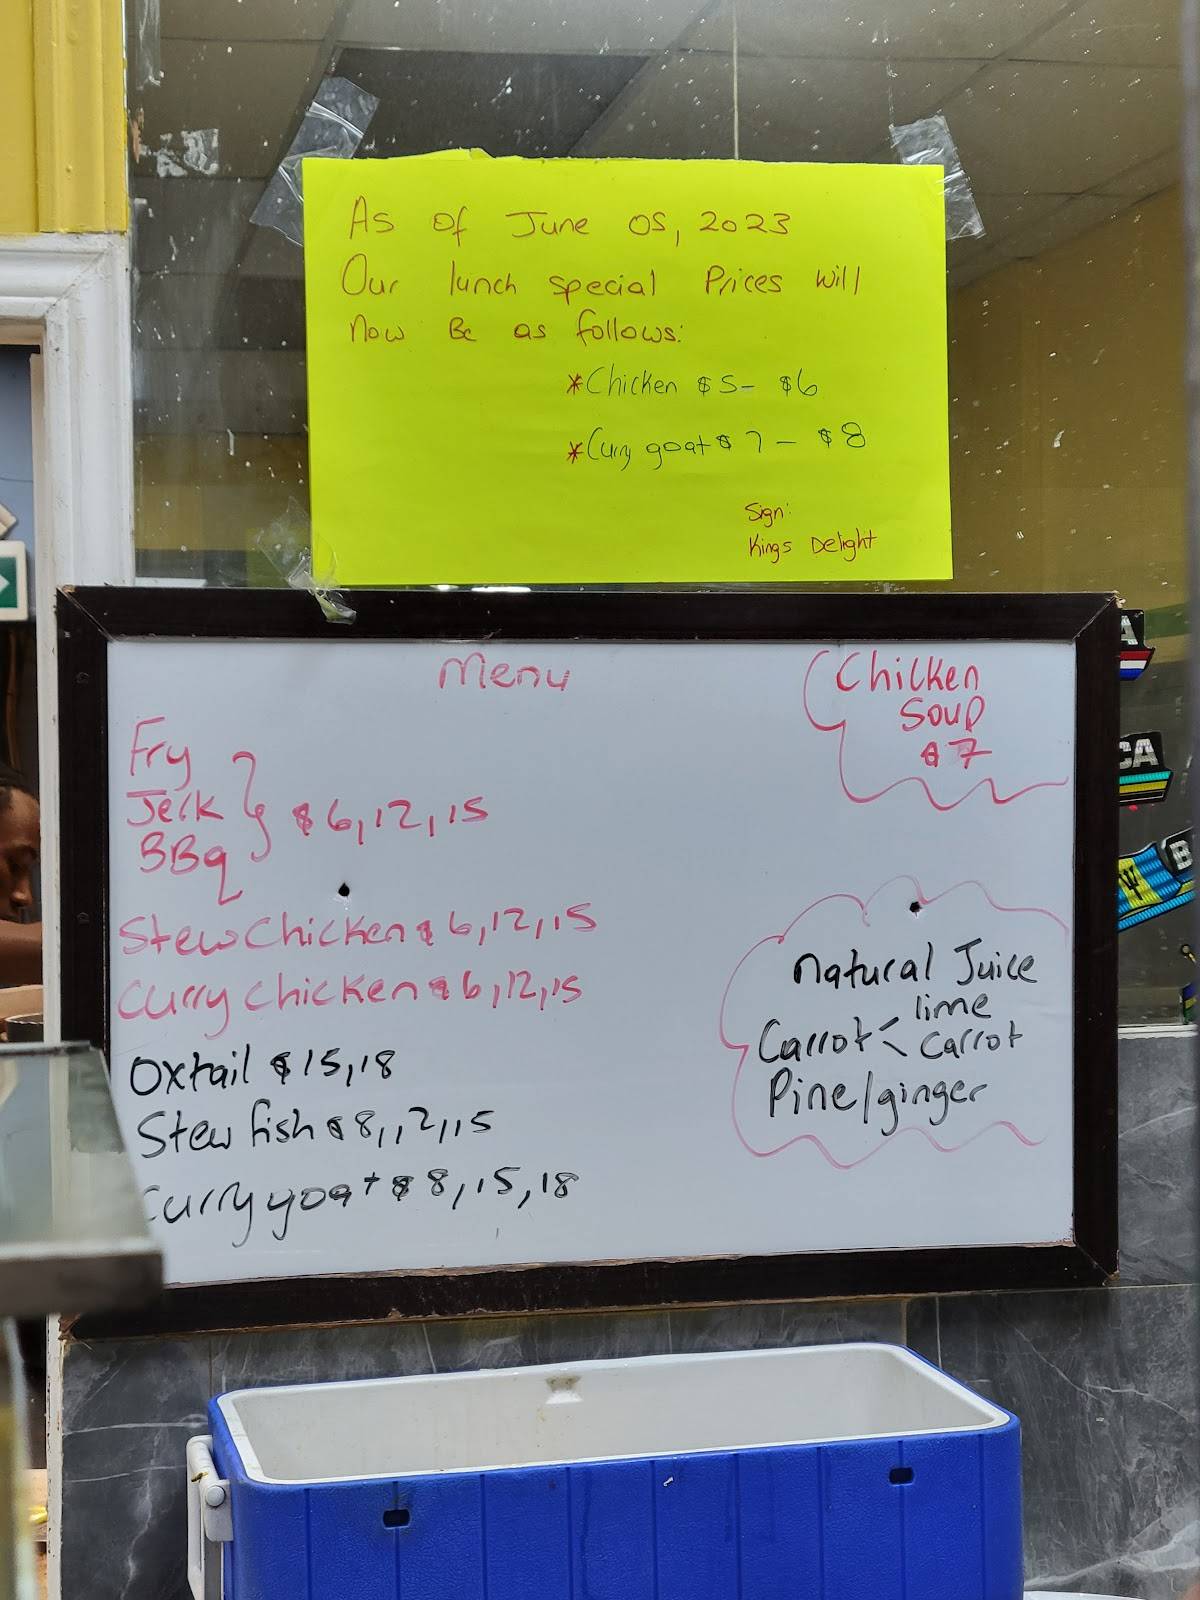 As of June 05, 2023
Our lunch special Prices will
now Be as follows:
*Chicken $5- $6
*Curry goat $7 - $8
Sign:
Kings Delight
Menu
Chicken
Soup
$7
Fry
Jerk
BBq
$6,12,15
Stew Chicken $6,12,15
Curry chicken $6,12,15
Oxtail $15,18
Stew fish $8,12,15
Curry goat $8,15,18
natural Juice
Carrot < lime
carrot
Pine/ginger
A
CA
B